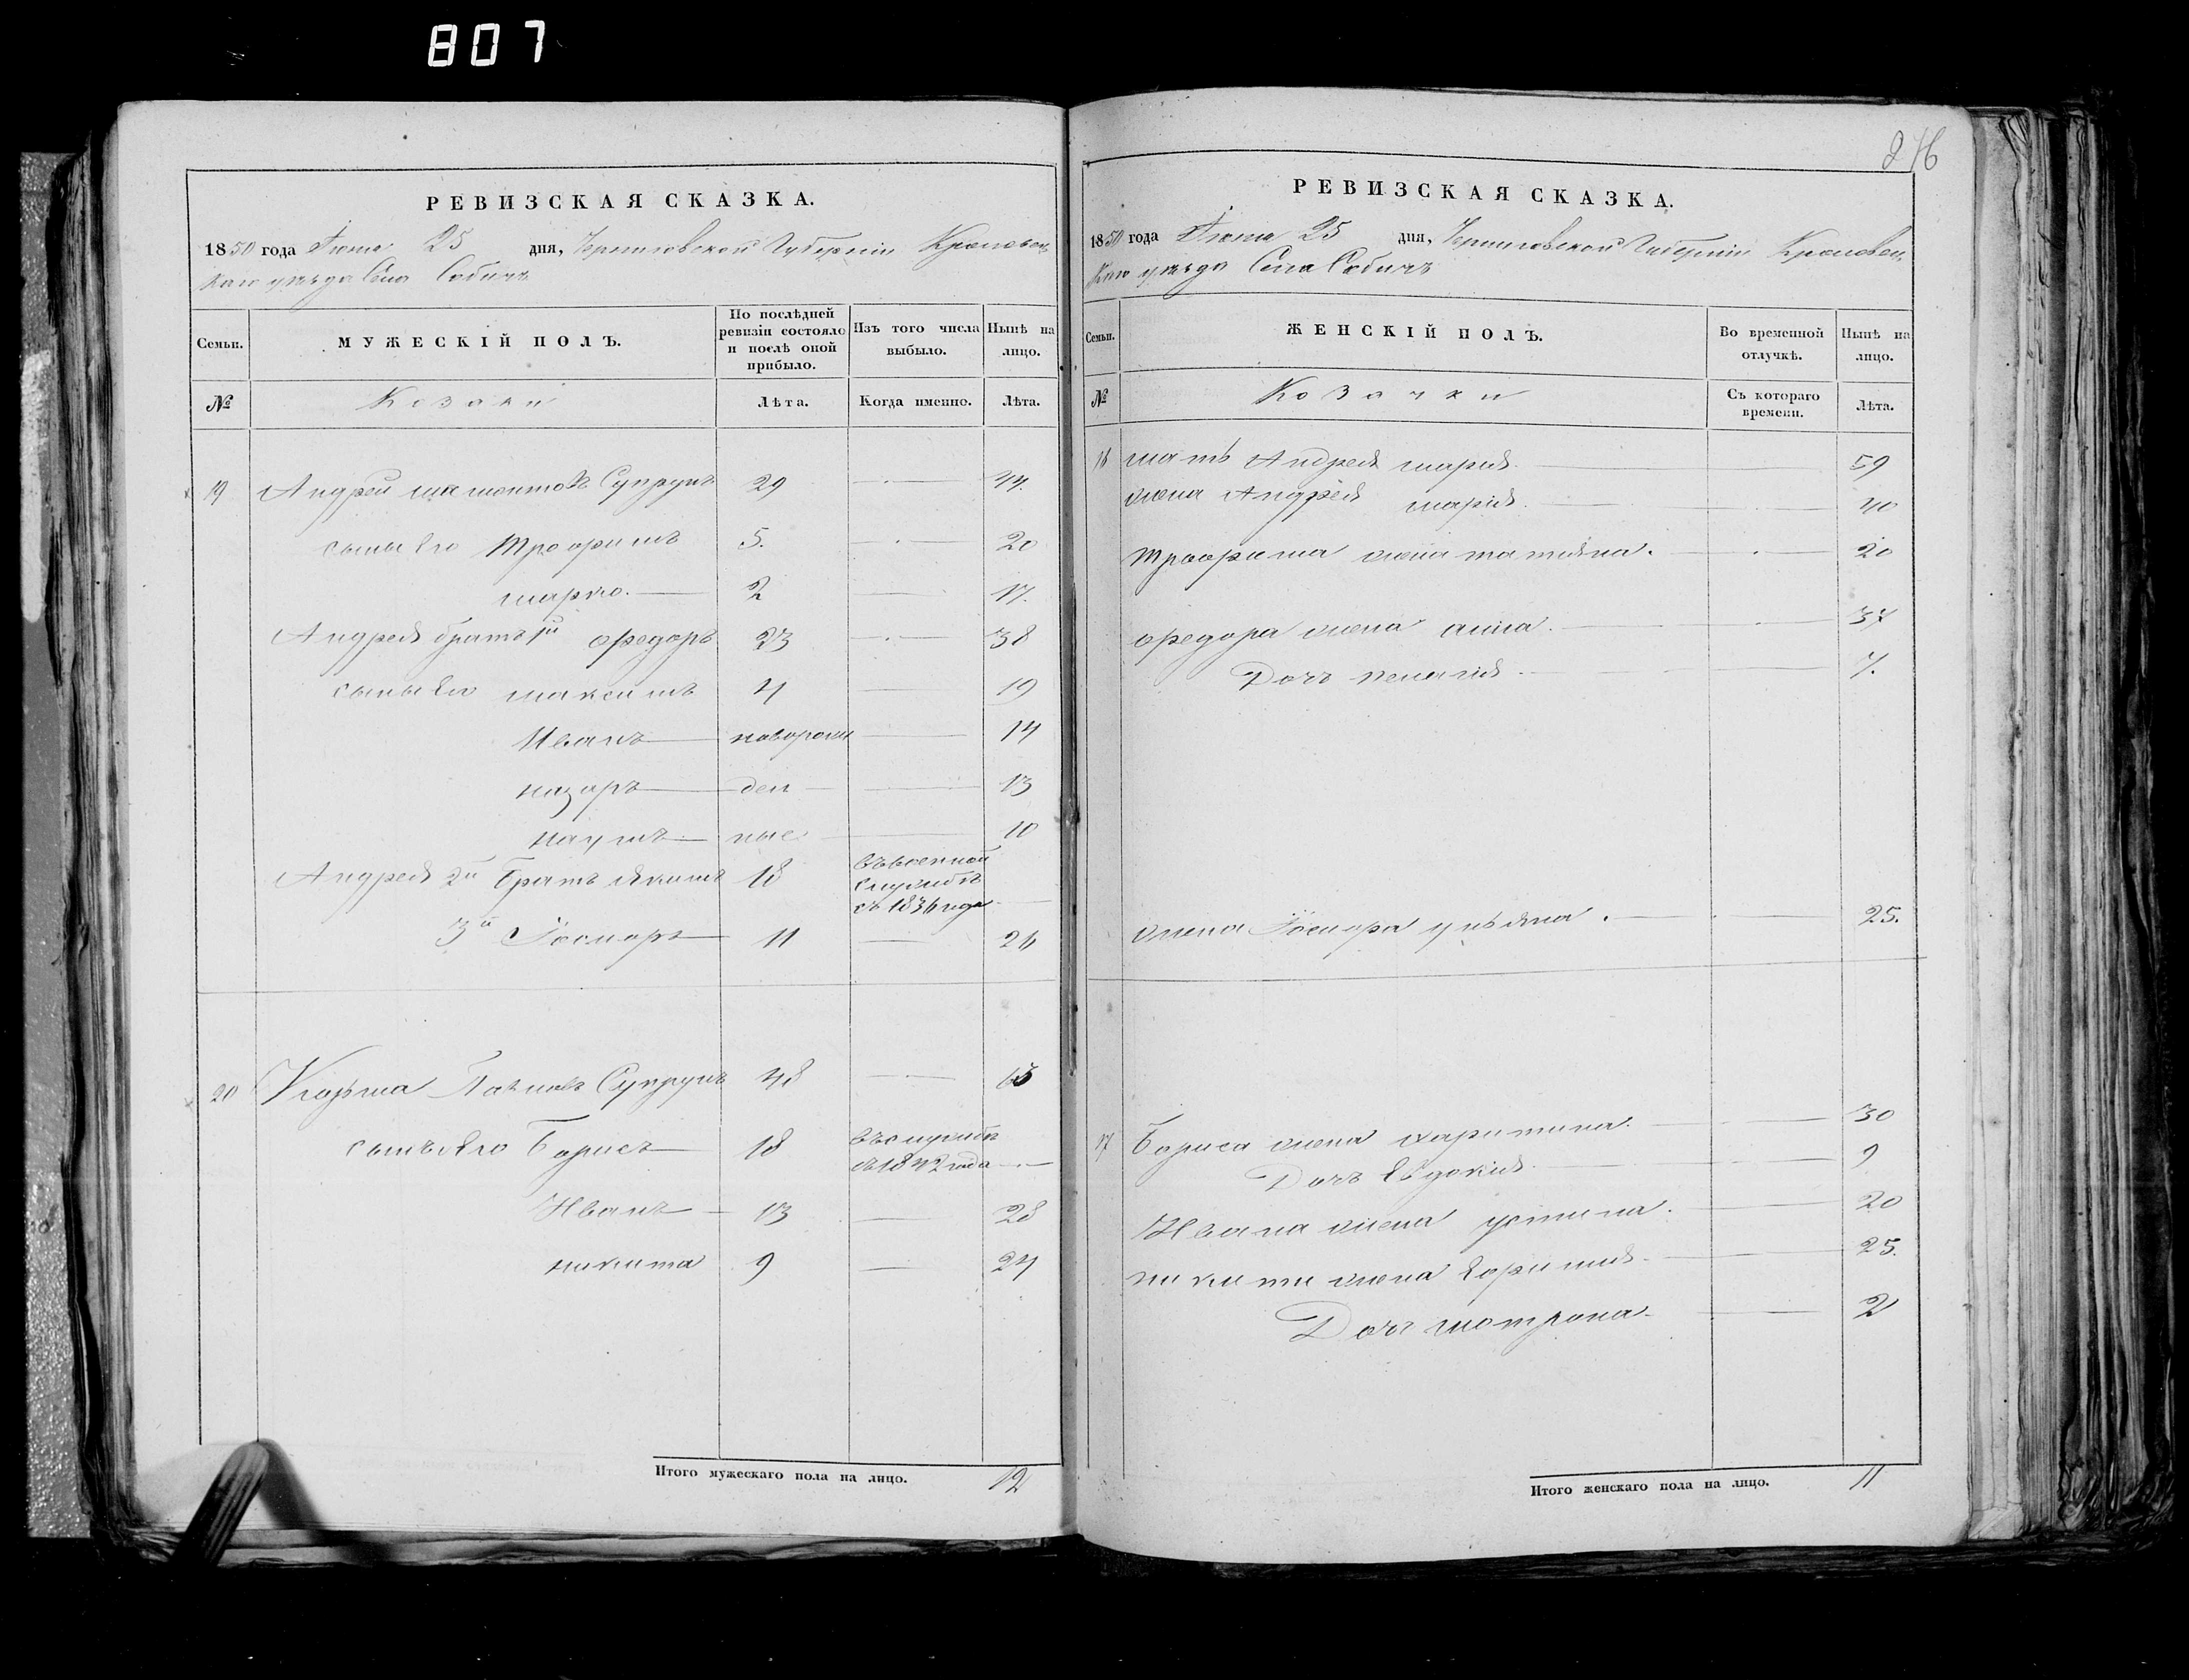 807
276
РЕВИЗСКАЯ СКАЗКА.
1850 года Іюня 25 дня, Черниговской Губерніи Кролевец
каго уѣзда Села Собичъ
Семьи.
МУЖЕСКІЙ ПОЛЪ.
По послѣдней ревизіи состояло и послѣ оной прибыло.
Изъ того числа выбыло.
Нынѣ на лицо.
№
Козаки
Лѣта.
Когда именно.
Лѣта.
19 Андрей Мамонтовъ Супрунъ 29 44.
сыны Его Трофимъ 5. 20
Марко. 2 17.
Андрея братъ 1й Федоръ 23 38
сыны Его Максимъ 4 19
Иванъ новорож 14
Назаръ ден 13
Наумъ ные 10
Андрея 2й Братъ Якимъ 18 въ военной службѣ съ 1836 года
3й 11 26
20 Супрунъ 48 63
сынъ Его Борисъ 18 въ службѣ съ 1842 года
Иванъ 13 28
Никита 9 24
Итого мужескаго пола на лицо. 12
РЕВИЗСКАЯ СКАЗКА.
1850 года Іюня 25 дня, Черниговской Губерніи Кролевец
каго уѣзда Села Собичъ
Семьи.
ЖЕНСКІЙ ПОЛЪ.
Во временной отлучкѣ.
Нынѣ на лицо.
№
Козачки
Съ котораго времени.
Лѣта.
мать Андрея Марія 59
жена Андрея Марія 40
Трофима жена Татіяна. 20
Федора жена Анна 37
Дочь 7.
жена Улияна 25.
Бориса жена Харитина. 30
Дочь Евдокія 9
Ивана жена Устина. 20
Никити жена Ефимія 25.
Дочь Мотрона 2
Итого женскаго пола на лицо. 11